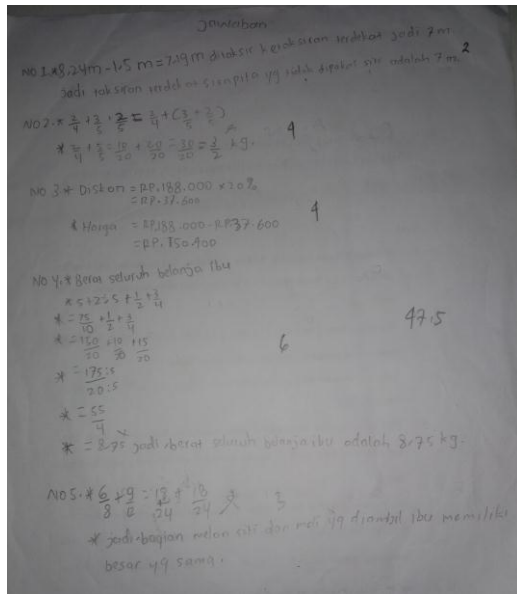 Jawaban
NO 1.* 8.24m - 1.5 m = 7.19m ditaksir ketaksiran terdekat jadi 7 m.
jadi taksiran terdekat sisa pita yg sudah dipakai siti adalah 7 m. 2
NO 2.* 3/4 + 3/5 + 2/5 = 3/4 + (3/5 + 2/5)
* 3/4 + 5/5 = 15/20 + 20/20 = 30/20 = 3/2 kg. 4
NO 3.* Diskon = RP.188.000 x 20%
= RP.37.600
* Harga = RP.188.000 - RP.37.600 4
= RP.150.400
NO 4.* Berat seluruh belanja ibu
* 5 + 2.5 + 1/2 + 3/4
* = 75/10 + 1/2 + 3/4
* = 150/20 + 10/20 + 15/20 6 47.5
* = 175:5/20:5
* = 55/4
* = 8.75 jadi berat seluruh belanja ibu adalah 8.75 kg.
NO 5.* 6/8 + 9 = 18/24 + 18/24 3
* jadi bagian melon siti dan meli yg diambil ibu memiliki
besar yg sama.